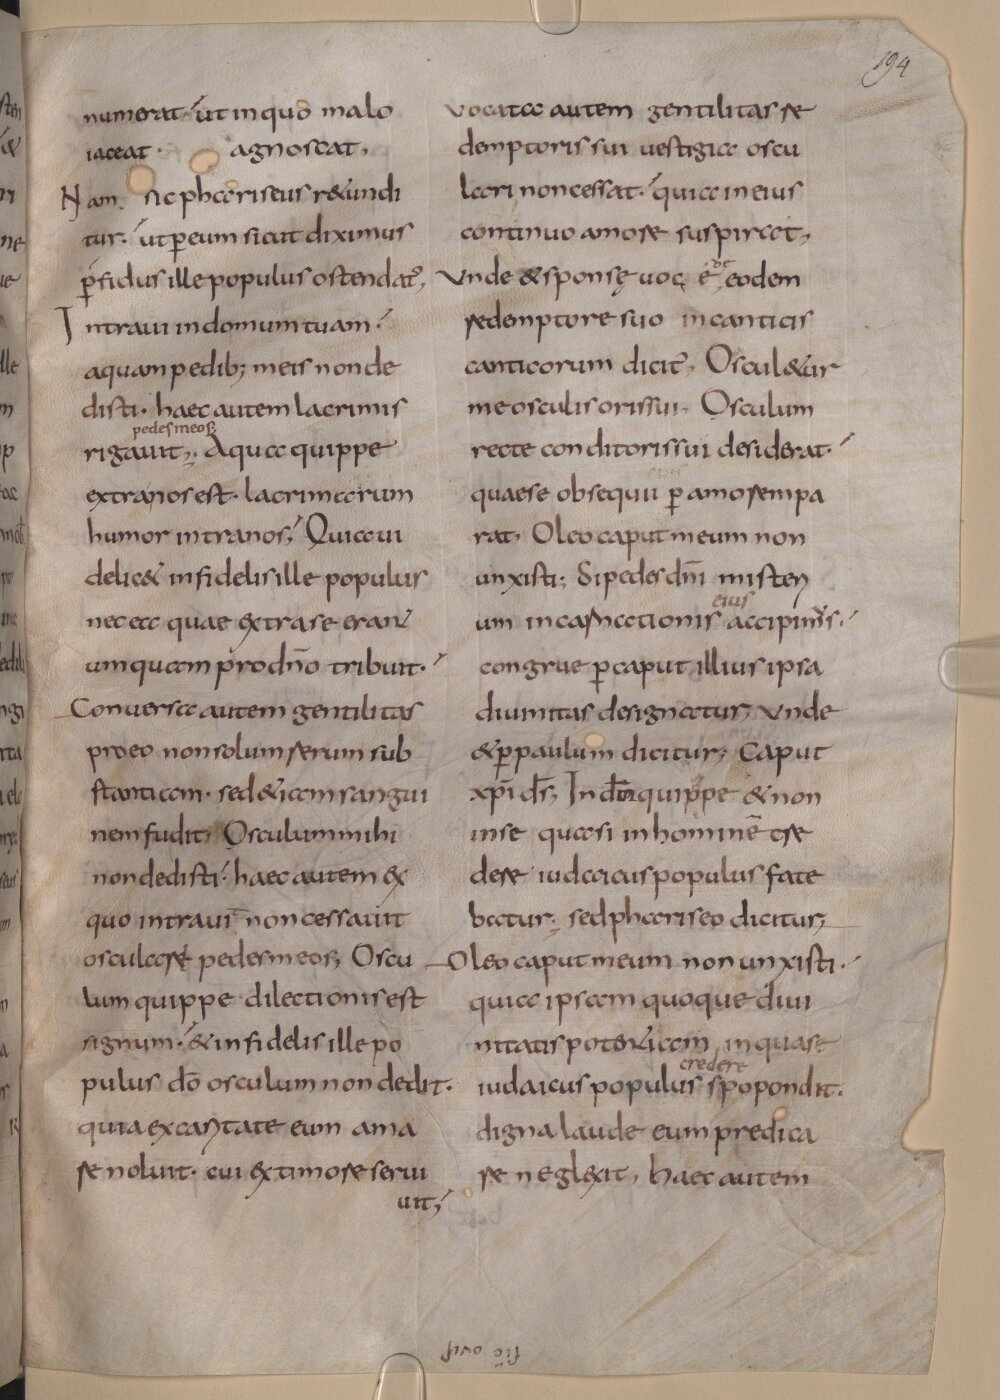 194
numerat. ut in quo malo
iaceat. agnoscat,
Nam sic phariseus r&undi
tur. ut p eum sicut diximus
pfidus ille populus ostendat,
Intraui in domum tuam.
aquam pedib; meis non de
disti. haec autem lacrimis
pedes meos;
rigauit,. Aqua quippe
extra nos est. lacrimarum
humor intra nos; Quia ui
delic& infidelis ille populus
nec ea quae extra se erant
umquam pro dño tribuit.
Conuersa autem gentilitas
pro eo non solum rerum sub
stantiam. sed &iam sangui
nem fudit; Osculum mihi
non dedisti. haec autem ex
quo intraui non cessauit
osculare pedes meos; Oscu
lum quippe dilectionis est
signum. & infidelis ille po
pulus dõ osculum non dedit.
quia ex caritate eum ama
re noluit. cui ex timore serui
uit;
vocata autem gentilitas re
demptoris sui uestigia oscu
lari non cessat. quia in eius
continuo amore suspirat,
Vnde & sponsę uoce de eodem
redemptore suo in canticis
canticorum dicit, Oscul&ur
me osculis oris sui. Osculum
recte conditoris sui desiderat.
quae se obsequii p amorem pa
rat, Oleo caput meum non
unxisti; Si pedes dñi misteri
eius
um incarnationis accipimus.
congrue p caput illius ipsa
diuinitas designatur; Vnde
& p paulum dicitur; Caput
xpi ds; In dm quippe & non
in se quasi in hominē cre
dere iudaicus populus fate
batur. sed phariseo dicitur;
Oleo caput meum non unxisti.
quia ipsam quoque diui
nitatis potentiam, in qua se
credere
iudaicus populus spopondit.
digna laude eum predica
re neglexit, haec autem